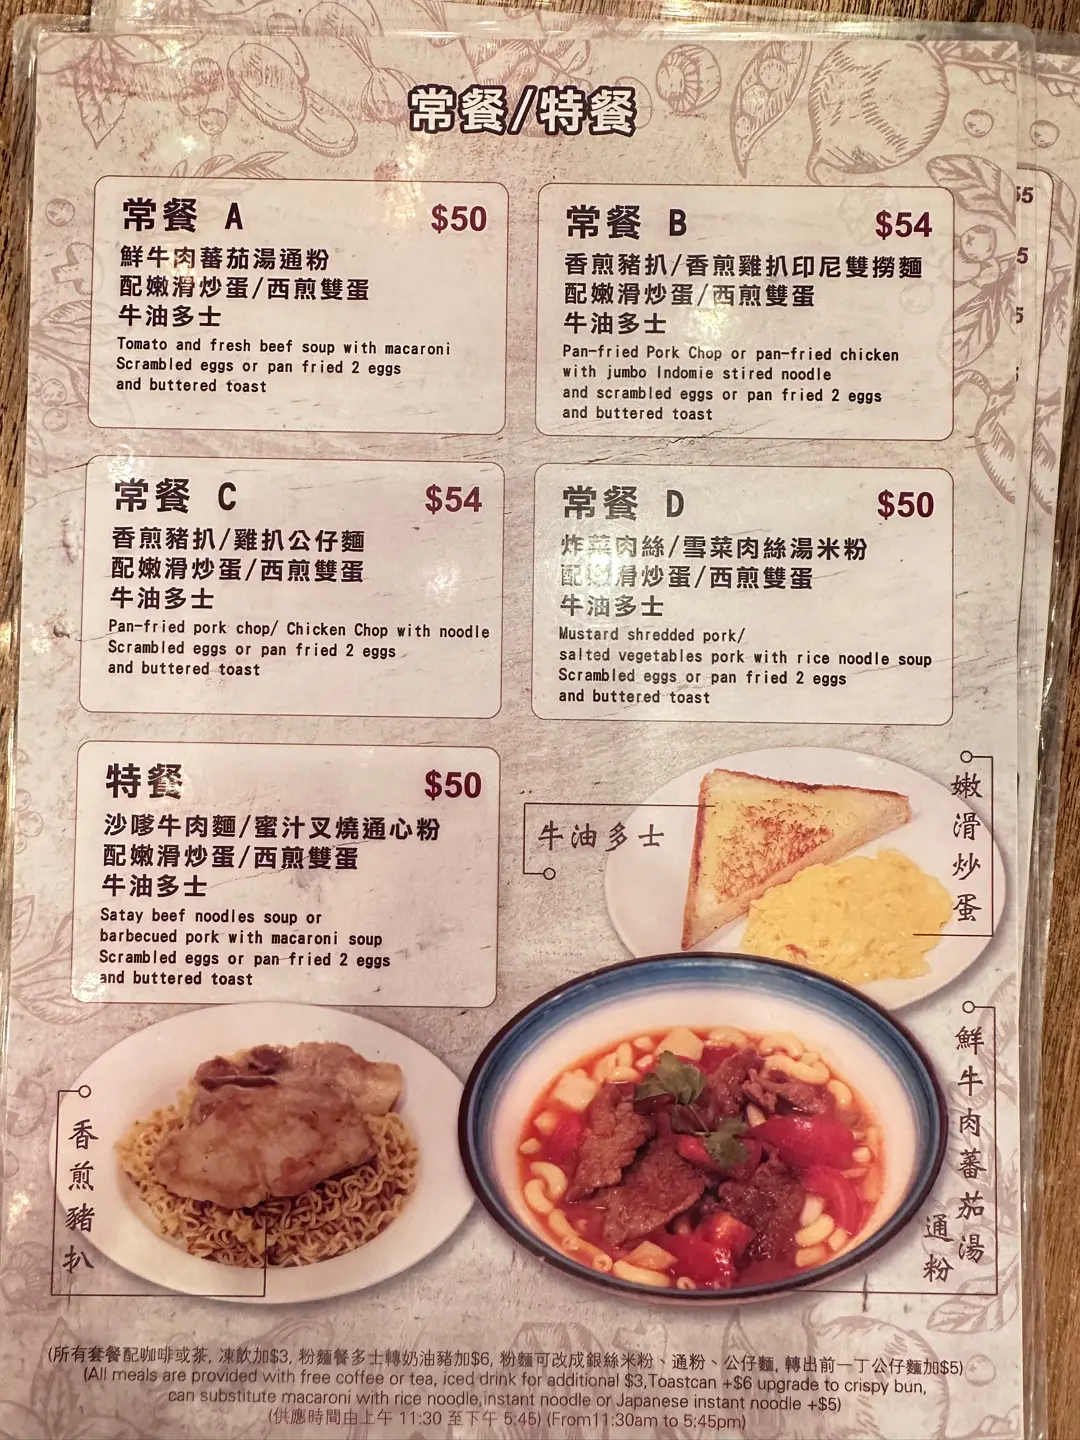 常餐/特餐
常餐 A $50
鮮牛肉蕃茄湯通粉
配嫩滑炒蛋/西煎雙蛋
牛油多士
Tomato and fresh beef soup with macaroni
Scrambled eggs or pan fried 2 eggs
and buttered toast
常餐 B $54
香煎豬扒/香煎雞扒印尼雙撈麵
配嫩滑炒蛋/西煎雙蛋
牛油多士
Pan-fried Pork Chop or pan-fried chicken
with jumbo Indomie stired noodle
and scrambled eggs or pan fried 2 eggs
and buttered toast
常餐 C $54
香煎豬扒/雞扒公仔麵
配嫩滑炒蛋/西煎雙蛋
牛油多士
Pan-fried pork chop/ Chicken Chop with noodle
Scrambled eggs or pan fried 2 eggs
and buttered toast
常餐 D $50
炸菜肉絲/雪菜肉絲湯米粉
配嫩滑炒蛋/西煎雙蛋
牛油多士
Mustard shredded pork/
salted vegetables pork with rice noodle soup
Scrambled eggs or pan fried 2 eggs
and buttered toast
特餐 $50
沙嗲牛肉麵/蜜汁叉燒通心粉
配嫩滑炒蛋/西煎雙蛋
牛油多士
Satay beef noodles soup or
barbecued pork with macaroni soup
Scrambled eggs or pan fried 2 eggs
and buttered toast
牛油多士
嫩滑炒蛋
香煎豬扒
鮮牛肉蕃茄湯
通粉
(所有套餐配咖啡或茶, 凍飲加$3, 粉麵餐多士轉奶油豬加$6, 粉麵可改成銀絲米粉、通粉、公仔麵, 轉出前一丁公仔麵加$5)
(All meals are provided with free coffee or tea, iced drink for additional $3,Toastcan +$6 upgrade to crispy bun,
can substitute macaroni with rice noodle,instant noodle or Japanese instant noodle +$5)
(供應時間由上午 11:30 至下午 5:45) (From11:30am to 5:45pm)